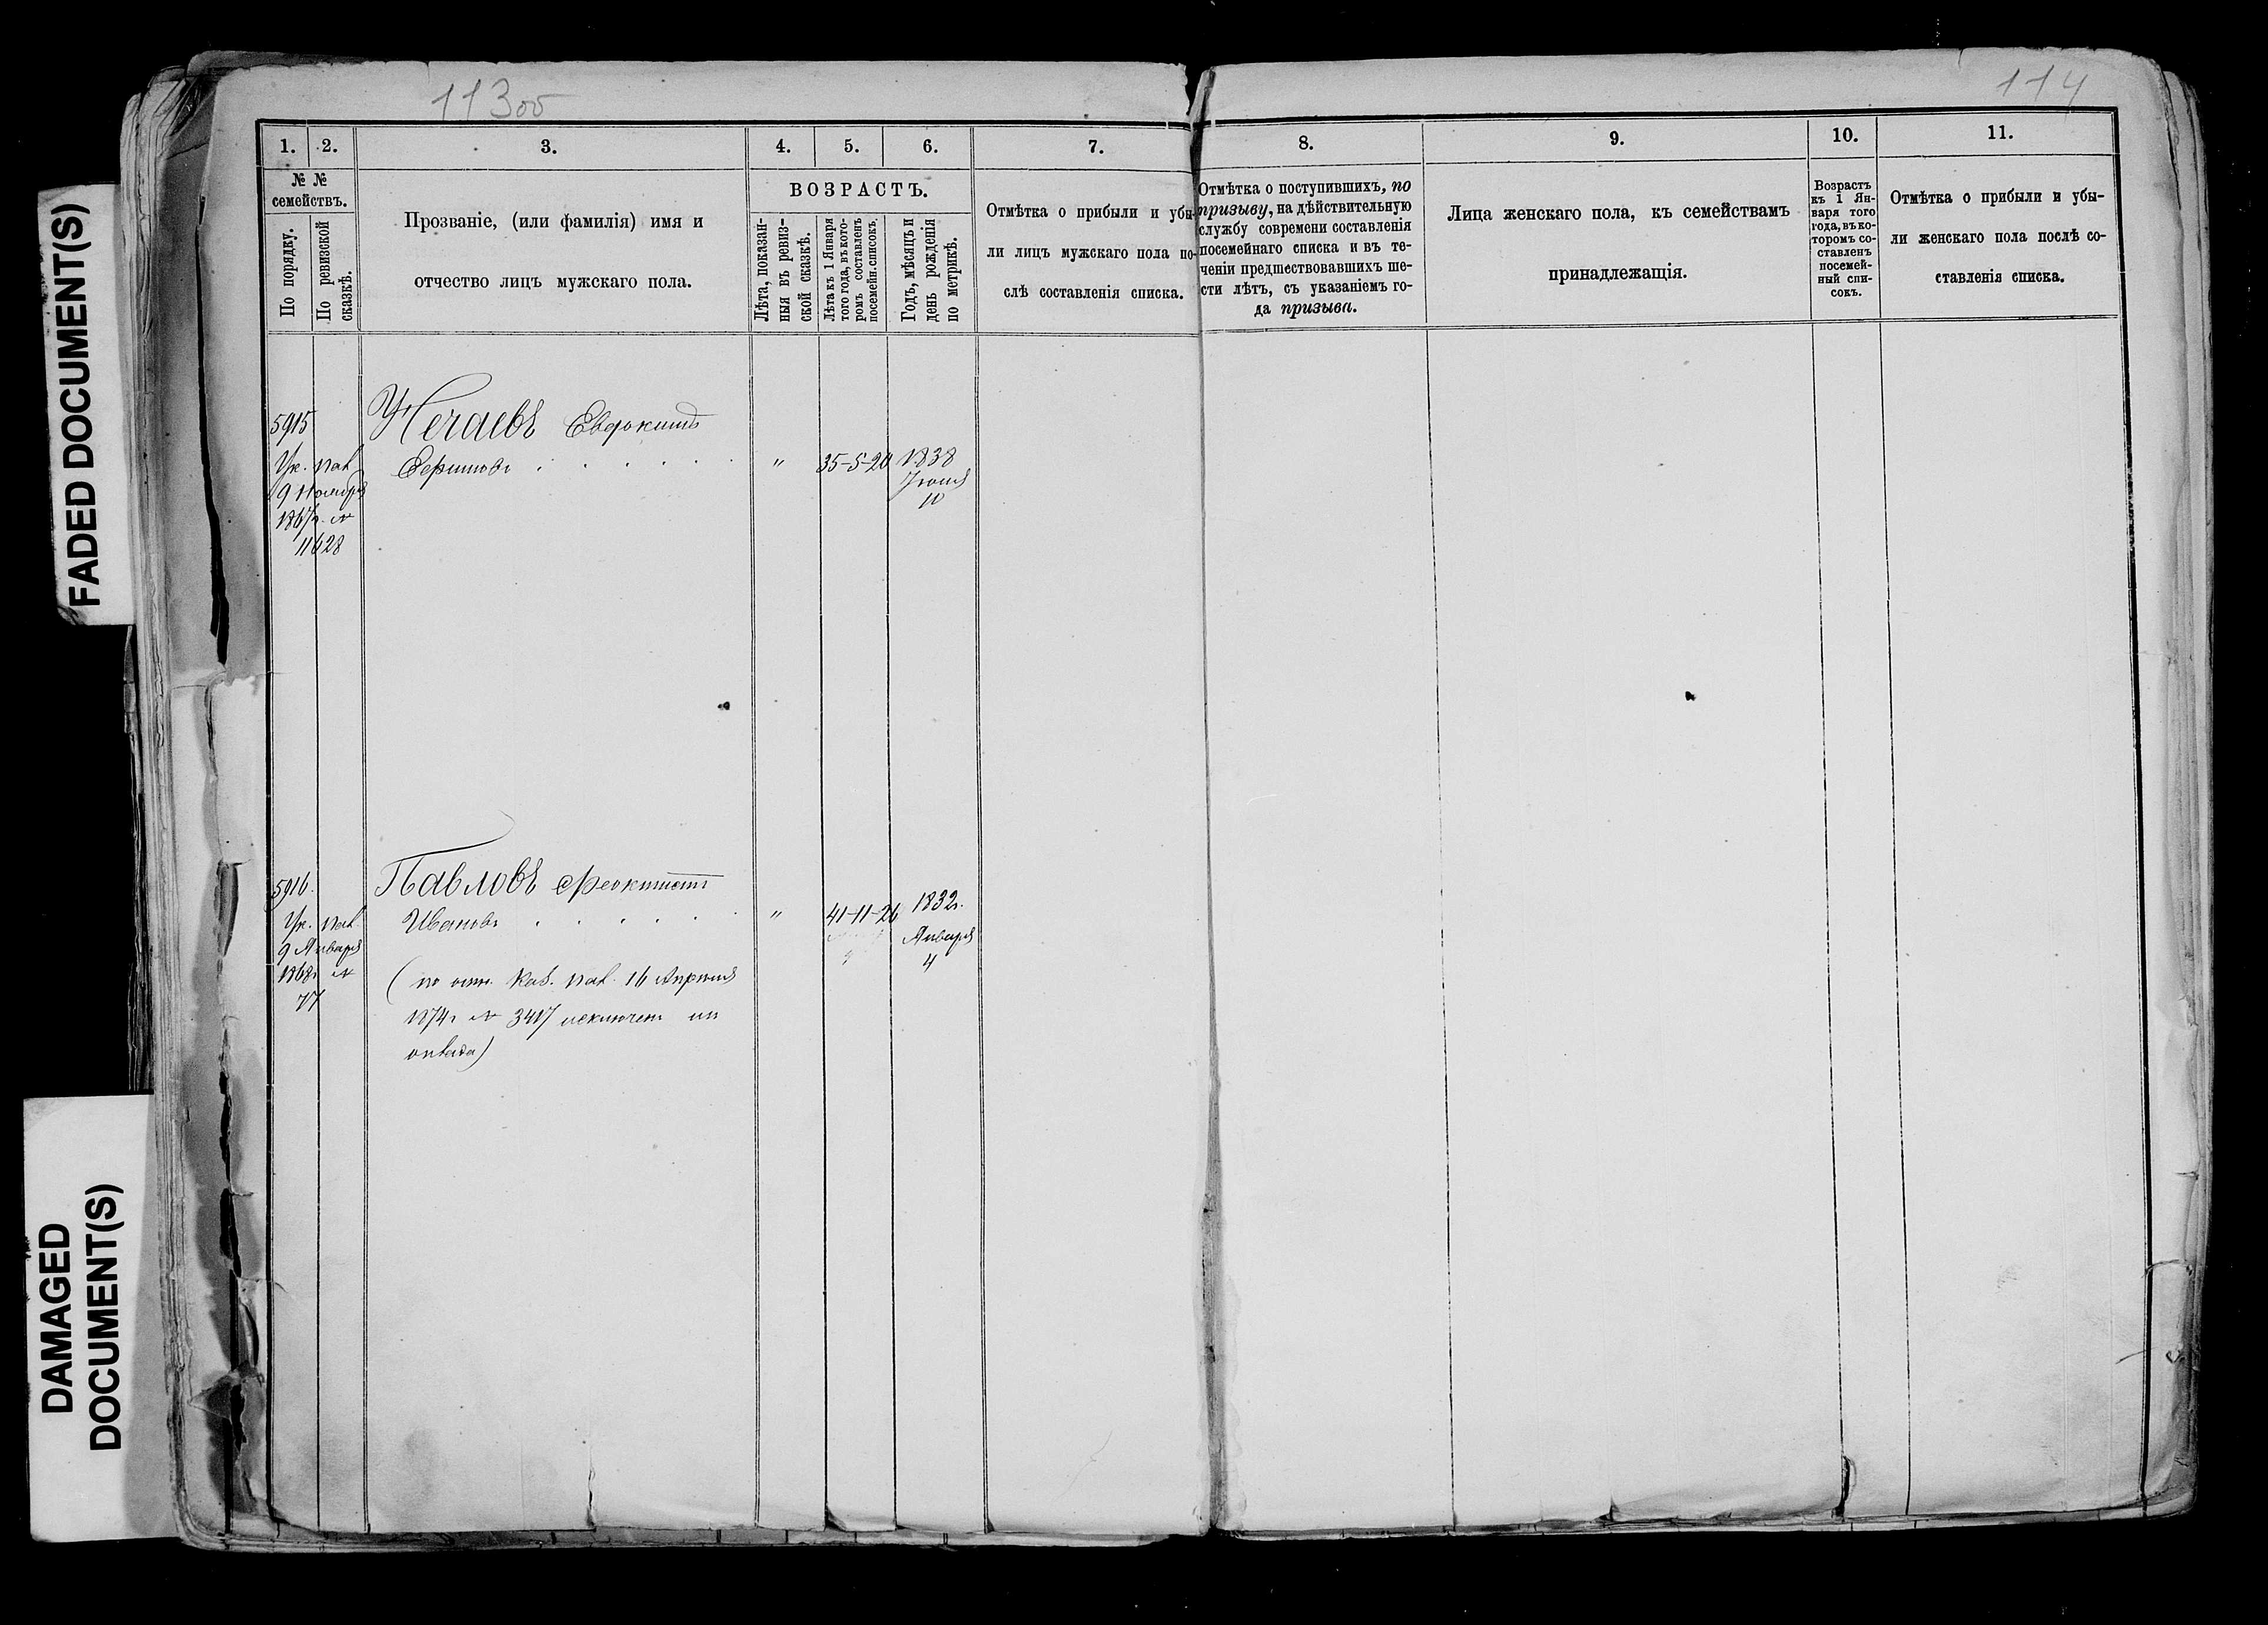 FADED DOCUMENT(S)
DAMAGED
DOCUMENT(S)
113об
114
1.
2.
3.
4.
5.
6.
7.
8.
9.
10.
11.
№ №
семействъ.
По порядку.
По ревизской
сказкѣ.
Прозваніе, (или фамилія) имя и
отчество лицъ мужскаго пола.
ВОЗРАСТЪ.
Лѣта, показан-
ныя въ ревиз-
ской сказкѣ.
Лѣта къ 1 Января
того года, въ кото-
ромъ составленъ
посемейн. списокъ.
Годъ, мѣсяцъ и
день рожденія
по метрикѣ.
Отмѣтка о прибыли и убы-
ли лицъ мужскаго пола по-
слѣ составленія списка.
Отмѣтка о поступившихъ, по
призыву, на дѣйствительную
службу современи составленія
посемейнаго списка и въ те-
ченіи предшествовавшихъ ше-
сти лѣтъ, съ указаніемъ го-
да призыва.
Лица женскаго пола, къ семействамъ
принадлежащія.
Возрастъ
къ 1 Ян-
варя того
года, въ ко-
торомъ со-
ставленъ
посемей-
ный спи-
сокъ.
Отмѣтка о прибыли и убы-
ли женскаго пола послѣ со-
ставленія списка.
5915
Нечаевъ Евдокимъ
Ук. пал.
9 Ноября
1867г. №
11628
" 35-5-20 1838
10
5916.
Павловъ Феоктистъ
Ивановъ
Ук. пал.
9 Января
1868г №
77
" 41-11-26 1832г.
Января
4
(по отн. Каз. пал. 16 Апрѣля
1874г № 3417 исключенъ из
оклада)